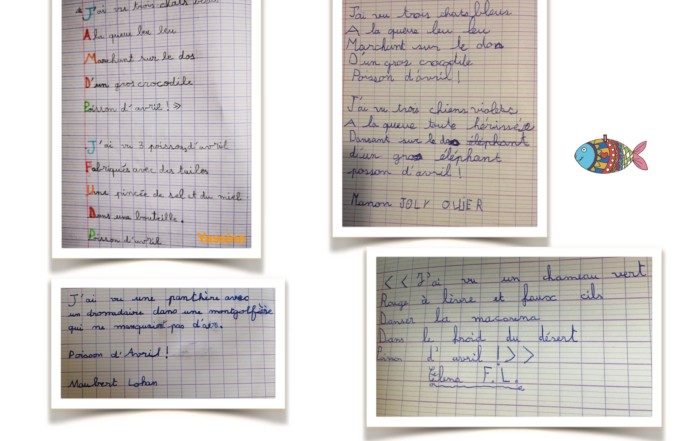 J'ai vu trois chats bleus
A la queue leu leu
Marchant sur le dos
D'un gros crocodile
Poisson d'avril ! »
J'ai vu 3 poissons d'avril
Fabriqués avec des tuiles
Une pincée de sel et du miel
Dans une bouteille.
Poisson d'avril
J'ai vu trois chats bleus
A la queue leu leu
Marchant sur le dos
D'un gros crocodile
Poisson d'avril !
J'ai vu trois chiens violets
A la queue toute hérissée
Dansant sur le dos éléphant
d'un gros éléphant
posson d'avril !
Manon JOLY OLLIER
J'ai vu une panthère avec
un dromadaire dans une montgolfière
qui ne manquaient pas d'air.
Poisson d'Avril !
Maubert Lohan
<< J'ai vu un chameau vert
Rouge à lèvre et faux cils
Danser la macarena
Dans le froid du désert
d'avril ! >>
Elena F.L.